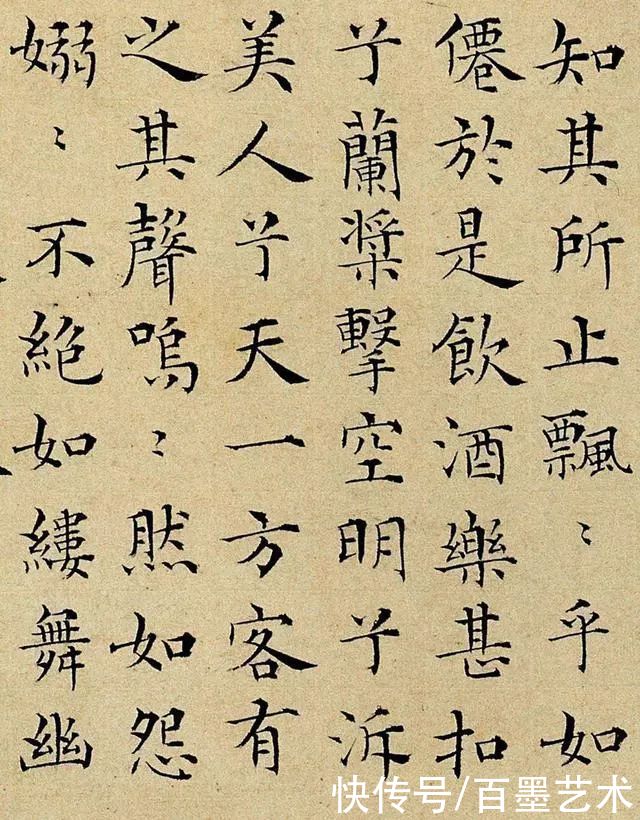 知其所止飄〻乎如
僊於是飲酒樂甚扣
兮蘭槳擊空明兮泝
美人兮天一方客有
之其聲嗚〻然如怨
嫋〻不絶如縷舞幽
快传号/百墨艺术